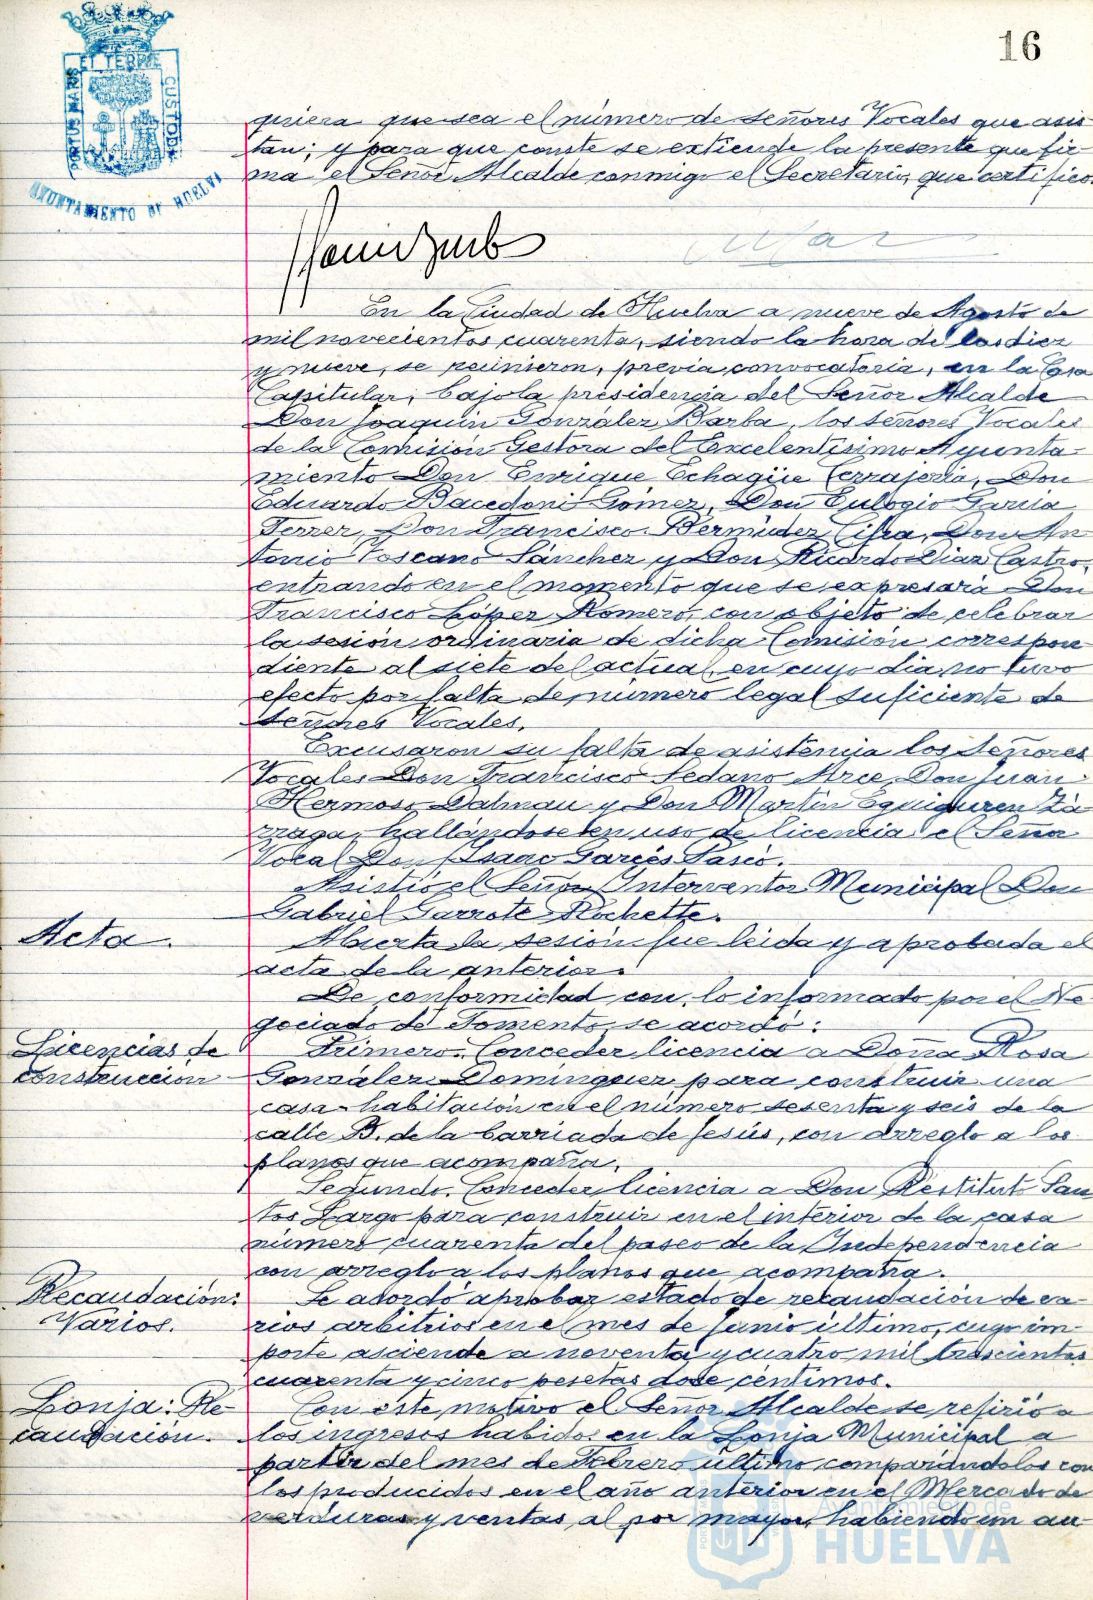 16
PORTUS MARIS ET TERRÆ CUSTODIA
AYUNTAMIENTO DE HUELVA
quiera que sea el número de señores Vocales que asis-
tan; y para que conste se extiende la presente que fir-
ma el Señor Alcalde conmigo el Secretario, que certifico.
En la Ciudad de Huelva a nueve de Agosto de
mil novecientos cuarenta, siendo la hora de las diez
y nueve, se reunieron, previa convocatoria, en la Casa
Capitular, bajo la presidencia del Señor Alcalde
Don Joaquín González Barba, los señores Vocales
de la Comisión Gestora del Excelentísimo Ayunta-
miento Don Enrique Echagüe Cerrajería, Don
Eduardo Bacedoni Gómez, Don Eulogio García
Ferrer, Don Francisco Bermúdez Cifra, Don An-
tonio Toscano Sánchez y Don Ricardo Díaz Castro,
entrando en el momento que se expresará Don
Francisco López Romero, con objeto de celebrar
la sesión ordinaria de dicha Comisión correspon-
diente al siete del actual, en cuyo día no tuvo
efecto por falta de número legal suficiente de
señores Vocales.
Excusaron su falta de asistencia los Señores
Vocales Don Francisco Sedano Arce, Don Juan
Hermoso Dalmau y Don Martín Eguiguren Zá-
rraga, hallándose en uso de licencia el Señor
Vocal Don Isaac Garcés Pascó.
Asistió el Señor Interventor Municipal Don
Gabriel Garrote Rochette.
Acta.
Abierta la sesión fue leída y aprobada el
acta de la anterior.
De conformidad con lo informado por el Ne-
gociado de Fomento, se acordó:
Licencias de
construcción
Primero. Conceder licencia a Doña Rosa
González Domínguez para construir una
casa-habitación en el número sesenta y seis de la
calle B. de la barriada de Jesús, con arreglo a los
planos que acompaña.
Segundo. Conceder licencia a Don Restituto San-
tos Largo para construir en el interior de la casa
número cuarenta del paseo de la Independencia
con arreglo a los planos que acompaña.
Recaudación:
Varios.
Se acordó aprobar estado de recaudación de va-
rios arbitrios en el mes de Junio último, cuyo im-
porte asciende a noventa y cuatro mil trescientas
cuarenta y cinco pesetas doce céntimos.
Lonja: Re-
caudación.
Con este motivo el Señor Alcalde se refirió a
los ingresos habidos en la Lonja Municipal a
partir del mes de Febrero último comparándolos con
los producidos en el año anterior en el Mercado de
verduras y ventas al por mayor, habiendo un au-
Ayuntamiento de
HUELVA